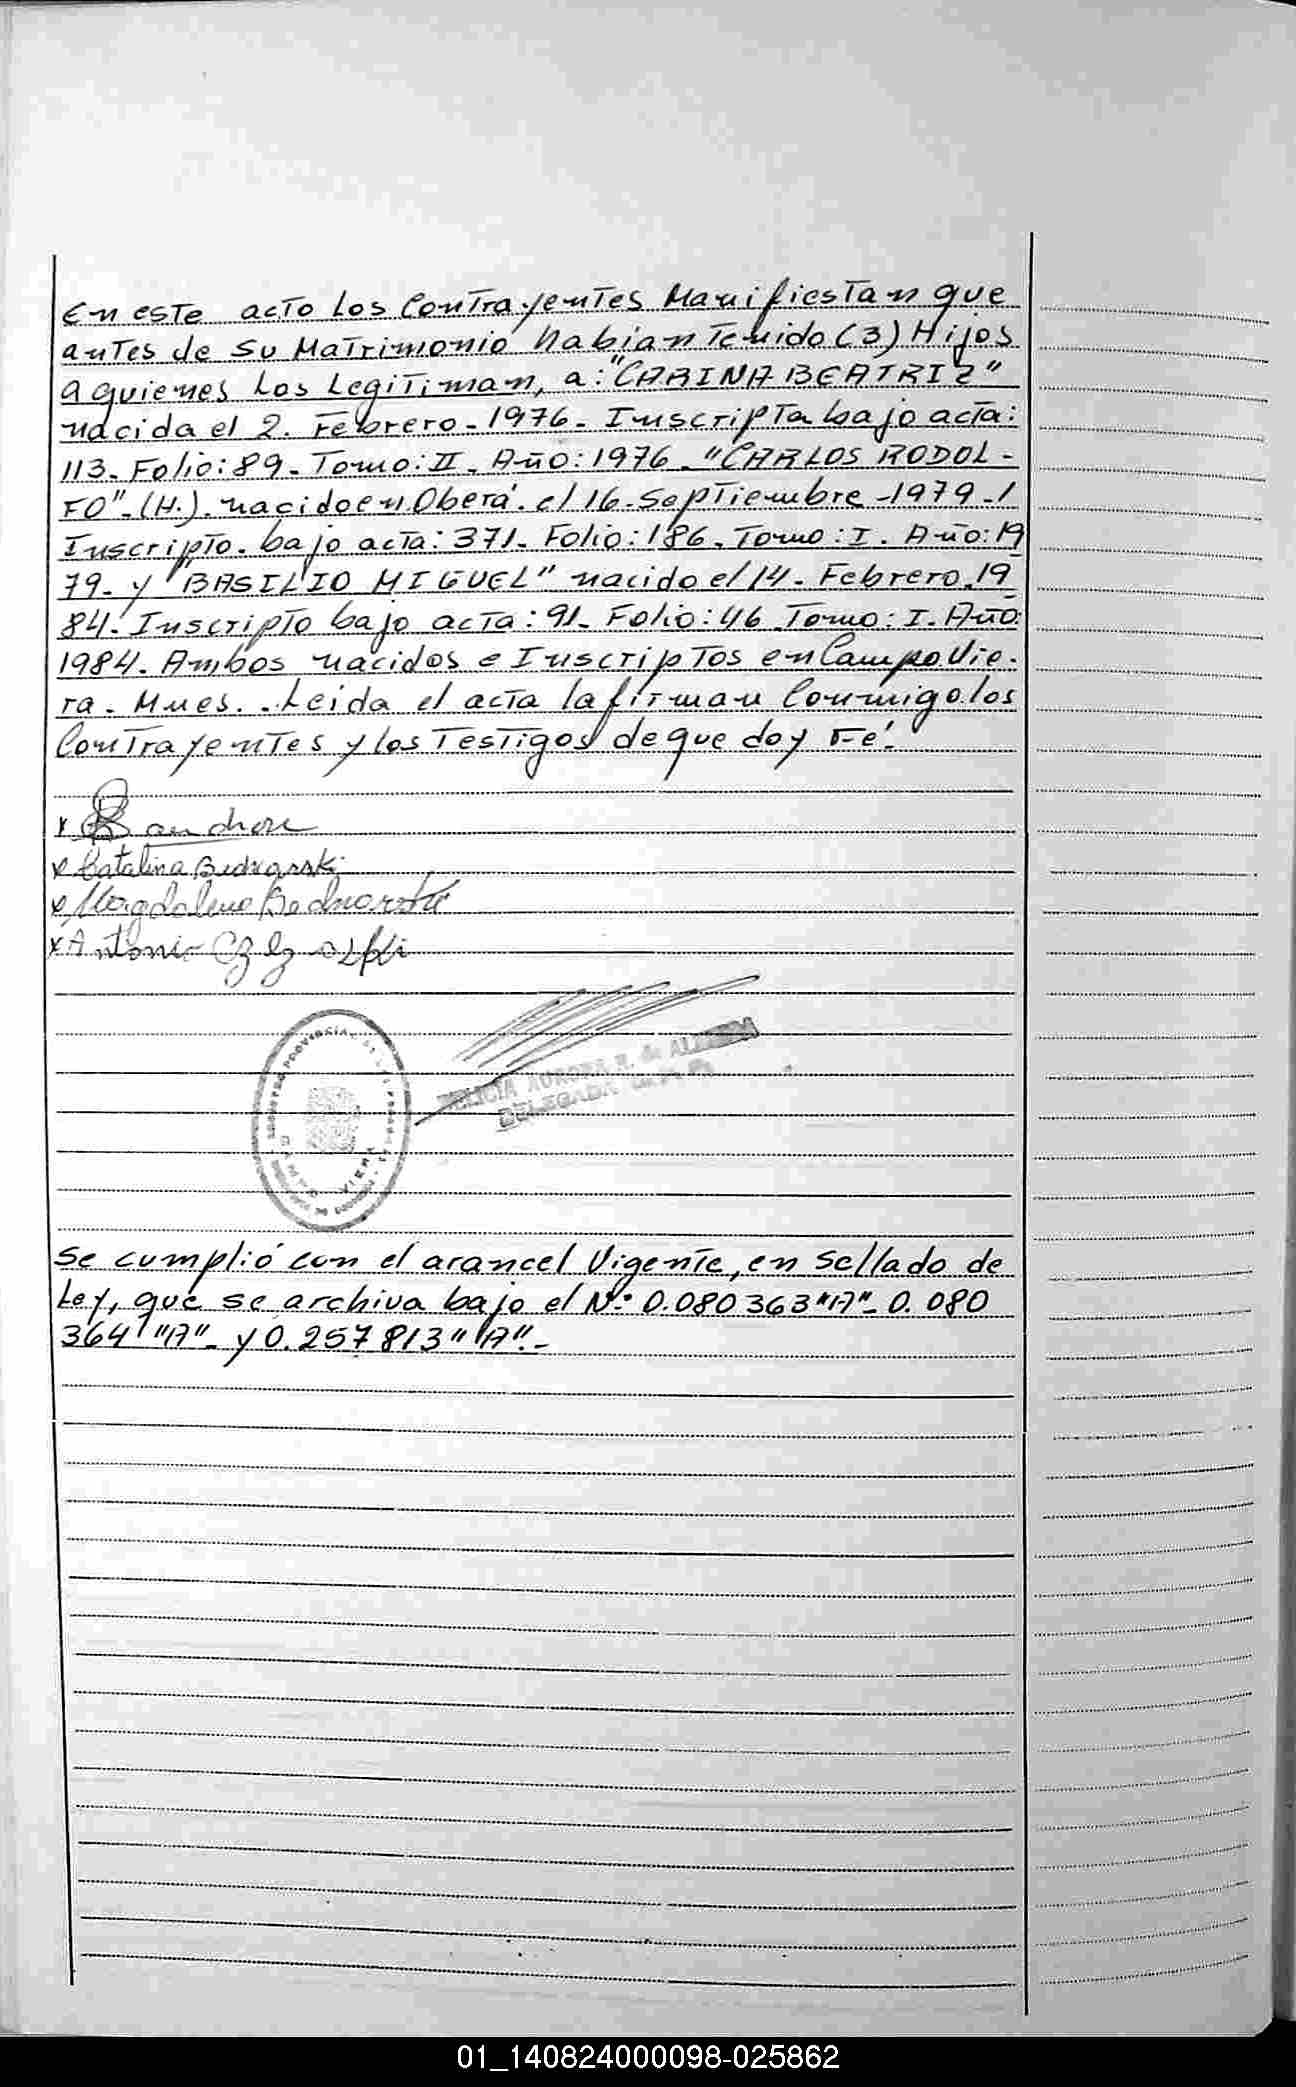 En este acto los Contrayentes Manifiestan que
antes de su Matrimonio habian Tenido (3) Hijos
a quienes los Legitiman, a: "CARINA BEATRIZ"
nacida el 2. Febrero-1976. Inscripta bajo acta:
113. Folio: 89. Tomo: II. Año: 1976. "CARLOS RODOL-
FO"-(H.). nacido en Oberá. el 16. Septiembre-1979-1
Inscripto. bajo acta: 371. Folio: 186. Tomo: I. Año: 19
79. y "BASILIO MIGUEL" nacido el 14. Febrero. 19
84. Inscripto bajo acta: 91. Folio: 46 Tomo: I. Año:
1984. Ambos nacidos e Inscriptos en Campo Vie.
ra. Mnes. Leida el acta la firman Conmigo los
Contrayentes y los Testigos de que doy Fé.
x
x Catalina Bednarski
x Magdalena Bednarski
x Antonio
REGISTRO PROVINCIAL DE LAS PERSONAS
CAMPO VIERA
FELICIA AURORA R. de
DELEGADA
Se cumplió con el arancel Vigente, en sellado de
Ley, que se archiva bajo el Nº: 0.080363 "A"- 0.080
364 "A"- y 0.257813 "A".-
01_140824000098-025862